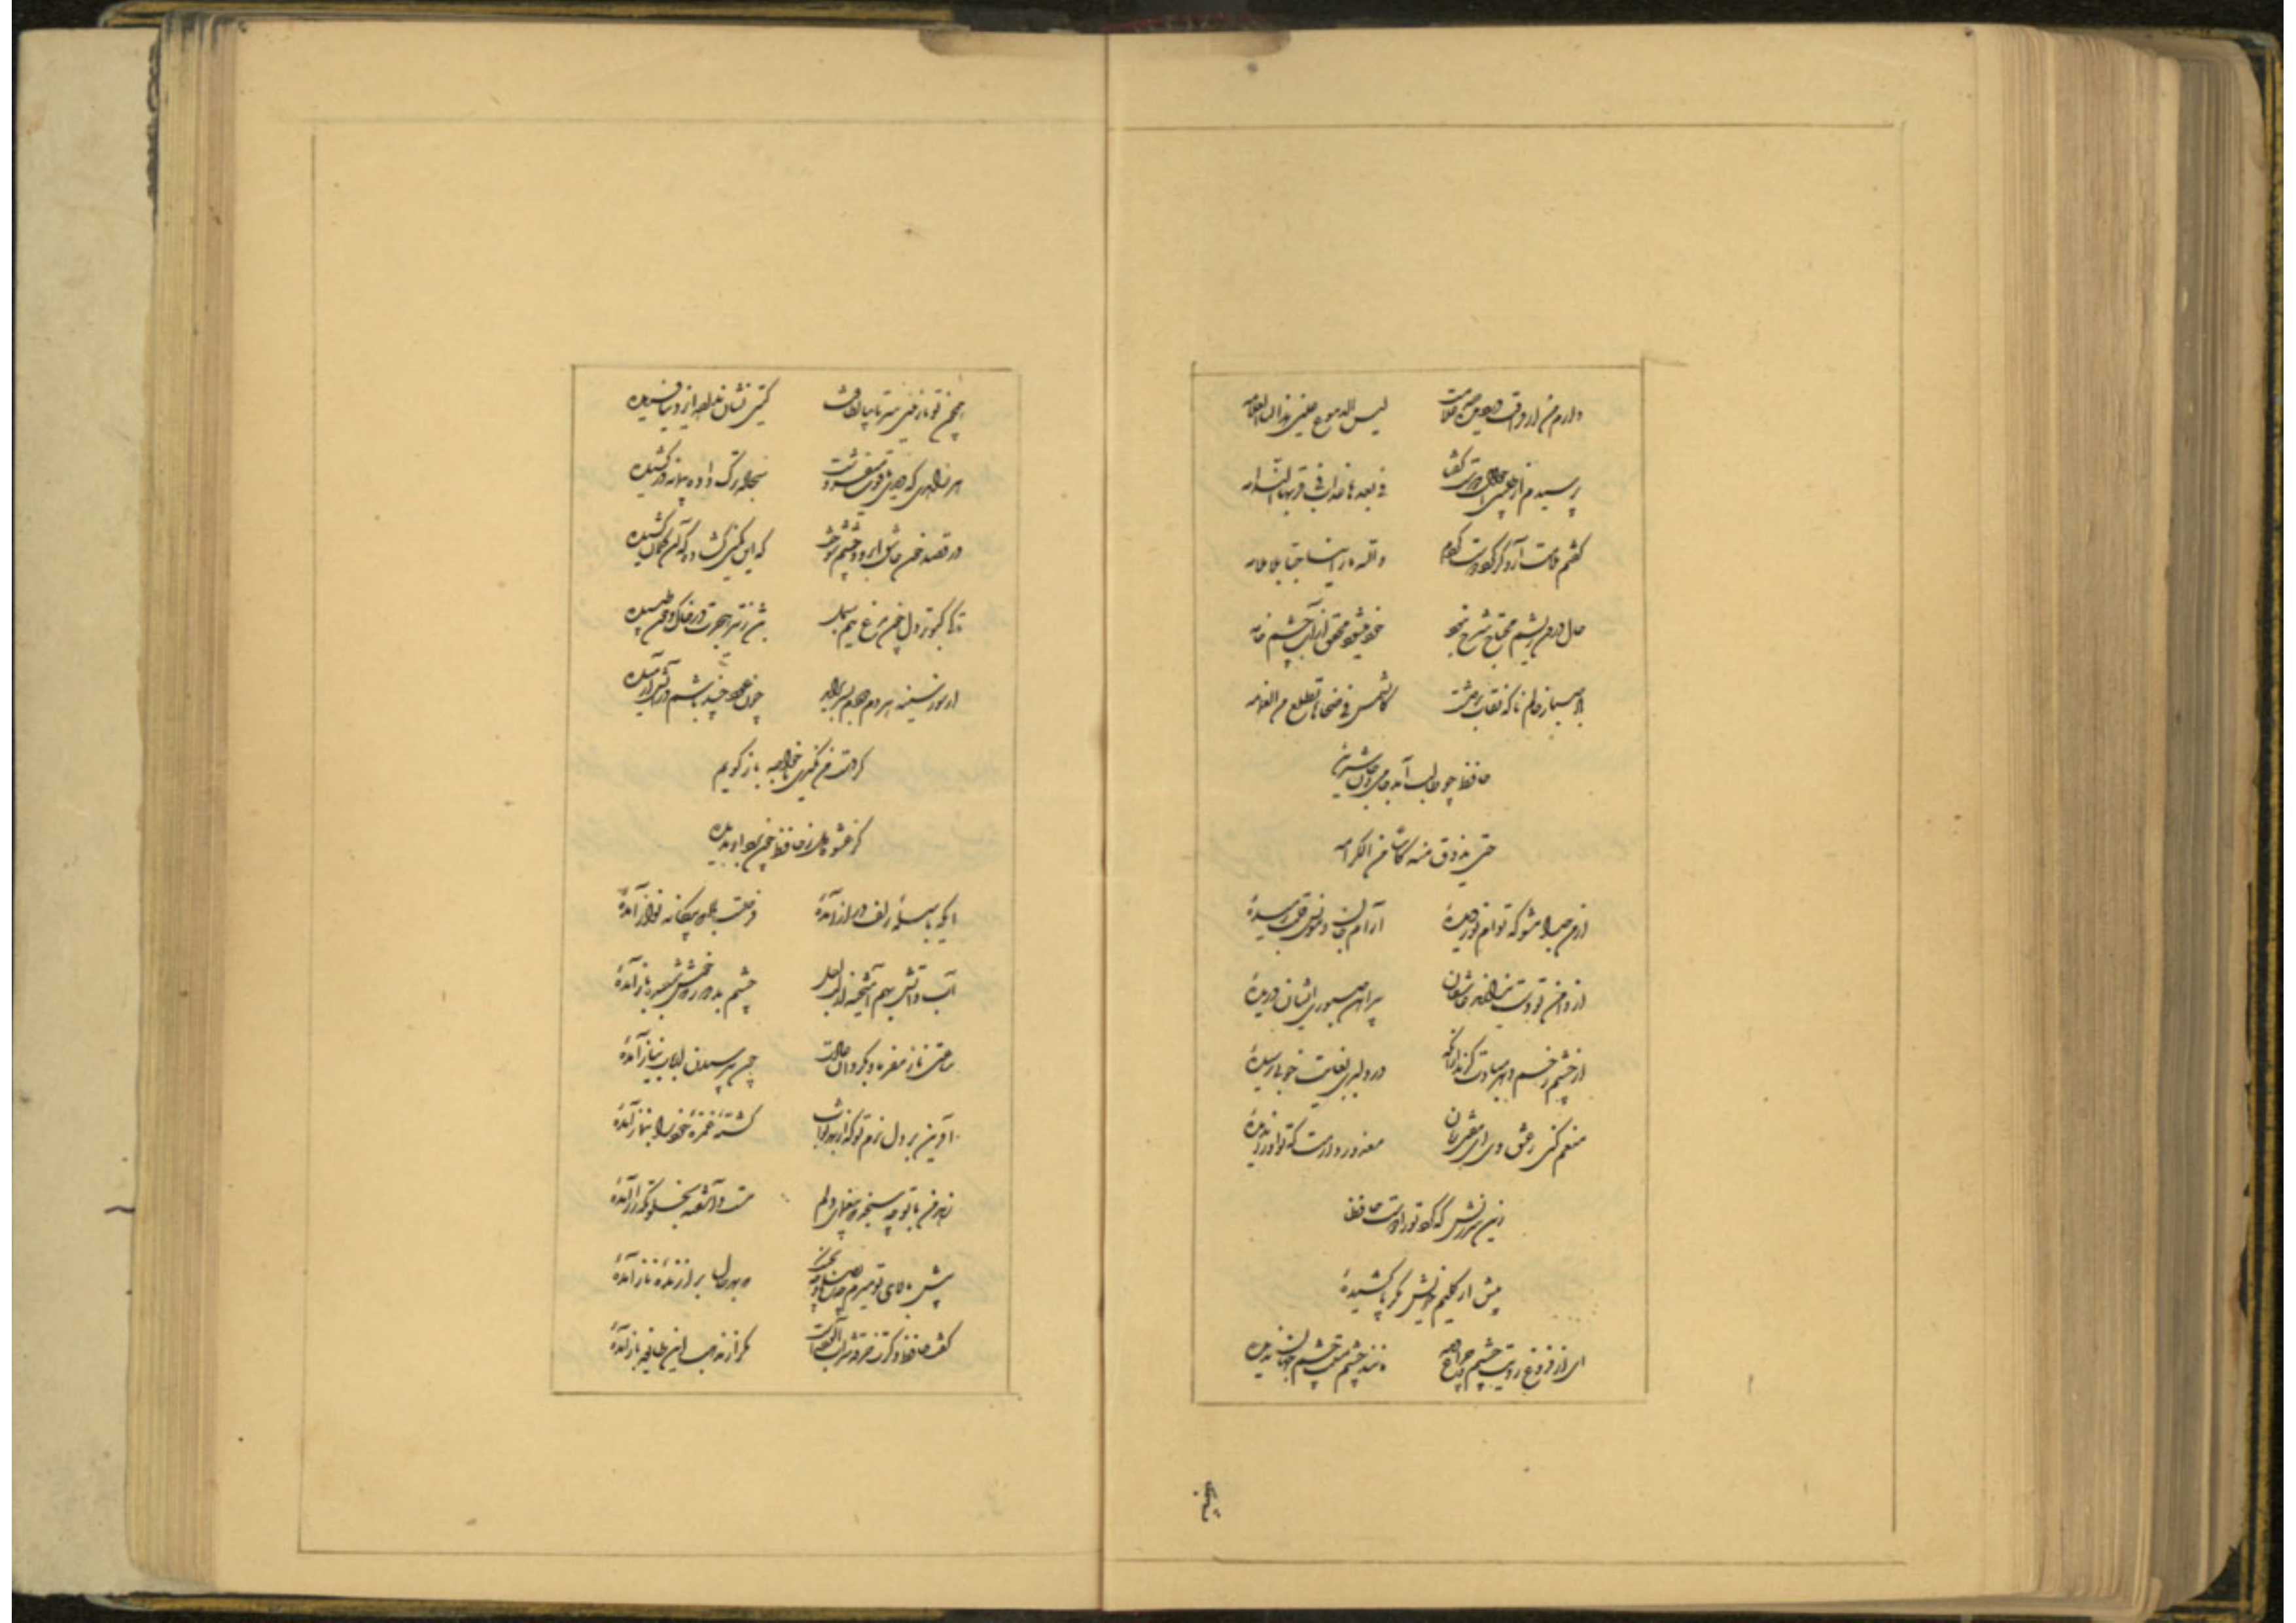 دارم من از فراقت در دیده صد علامت لیس الدموع عینی هذا لنا العلامه
پرسیدم از طبیبی احوال دوست گفتا فی بعدها عذاب فی قربها السلامه
گفتم ملامت آرد گر گرد دوست گردم والله ما راینا حبا بلا ملامه
حال درون ریشم محتاج شرح نبود خود میشود محقق از آب چشم خامه
باد صبا ز حالم ناگه نقاب برداشت کالشمس فی ضحاها تطلع من الغمامه
حافظ چو طالب آمد جامی بجان شیرین
حتی یذوق منه کاسا من الکرامه
از من جدا مشو که توام نور دیدهٔ آرام جان و مونس قلب رمیدهٔ
از دامن تو دست ندارند عاشقان پیراهن صبوری ایشان دریدهٔ
از چشم زخم دهر مبادت گزند از آنکه در دلبری بغایت خوبی رسیدهٔ
منعم کنی ز عشق وی ای مفتی زمان معذور دارمت که تو او را ندیدهٔ
زین سرزنش که کرد تو را دوست حافظا
بیش از گلیم خویش مگر پا کشیدهٔ
ای از فروغ رویت چشم چراغ دیده مانند چشم مستت چشم جهان ندیده
همچون
همچون تو نازنینی سر تا بپا لطافت گیتی نشان نداده ایزد نیافریده
هر زاهدی که دیدی یاقوت میفروشت سجاده ترک داده پیمانه در کشیده
در قصد خون عاشق ابرو و چشم شوخت که این کمین گشاده که آن کمان کشیده
تا کی کبوتر دل چون مرغ نیم بسمل باشد ز تیر هجرت در خاک و خون طپیده
از سوز سینه هر دم دودم بسر برآید چون عود چند باشم در آتش آرمیده
گر دست من نگیری با خواجه باز گویم
کز عشوه دل ز حافظ چون برد او بدیده
ایکه با سلسلهٔ زلف دراز آمدهٔ فرصتت باد که بیگانه نواز آمدهٔ
آب و آتش بهم آمیختهٔ از لب لعل چشم بد دور که خوش شعبده باز آمدهٔ
ساعتی ناز مفرما و بگردان عادت چون بپرسیدن ارباب نیاز آمدهٔ
آفرین بر دل نرم تو که از بهر ثواب کشتهٔ غمزهٔ خود را بنماز آمدهٔ
زهد من با تو چه سنجد که بیغمای دلم مست و آشفته بخلوتگه راز آمدهٔ
پیش بالای تو میرم چه بصلح و چه بجنگ که بهر حال برازندهٔ ناز آمدهٔ
گفت حافظ دگرت خرقه شراب آلودست مگر از مذهب این طایفه باز آمدهٔ